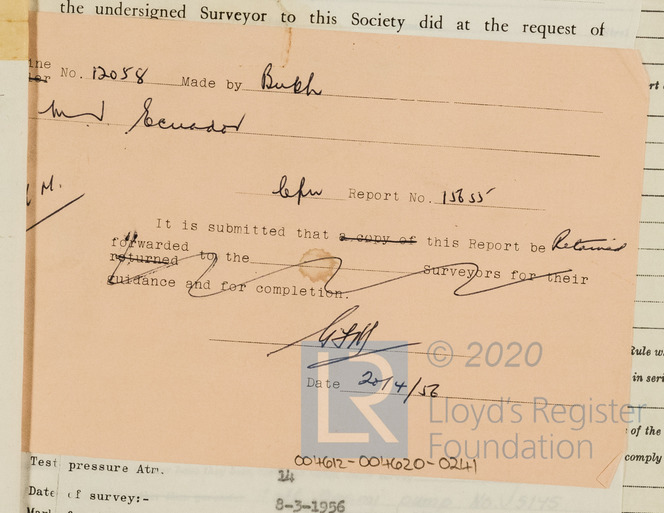 the undersigned Surveyor to this Society did at the request of
ine
ler No. 12058 Made by Bukh
M.V. Ecuador
M.
Cpn Report No. 15655
It is submitted that a copy of this Report be Retained
forwarded
returned to the Surveyors for their
guidance and for completion.
Date 20/4/56
© 2020
LR
Lloyd's Register
Foundation
004612-004620-0241
Rule w
in seri
of the
comply
Test pressure Atm. 14
Date of survey:- 8-3-1956